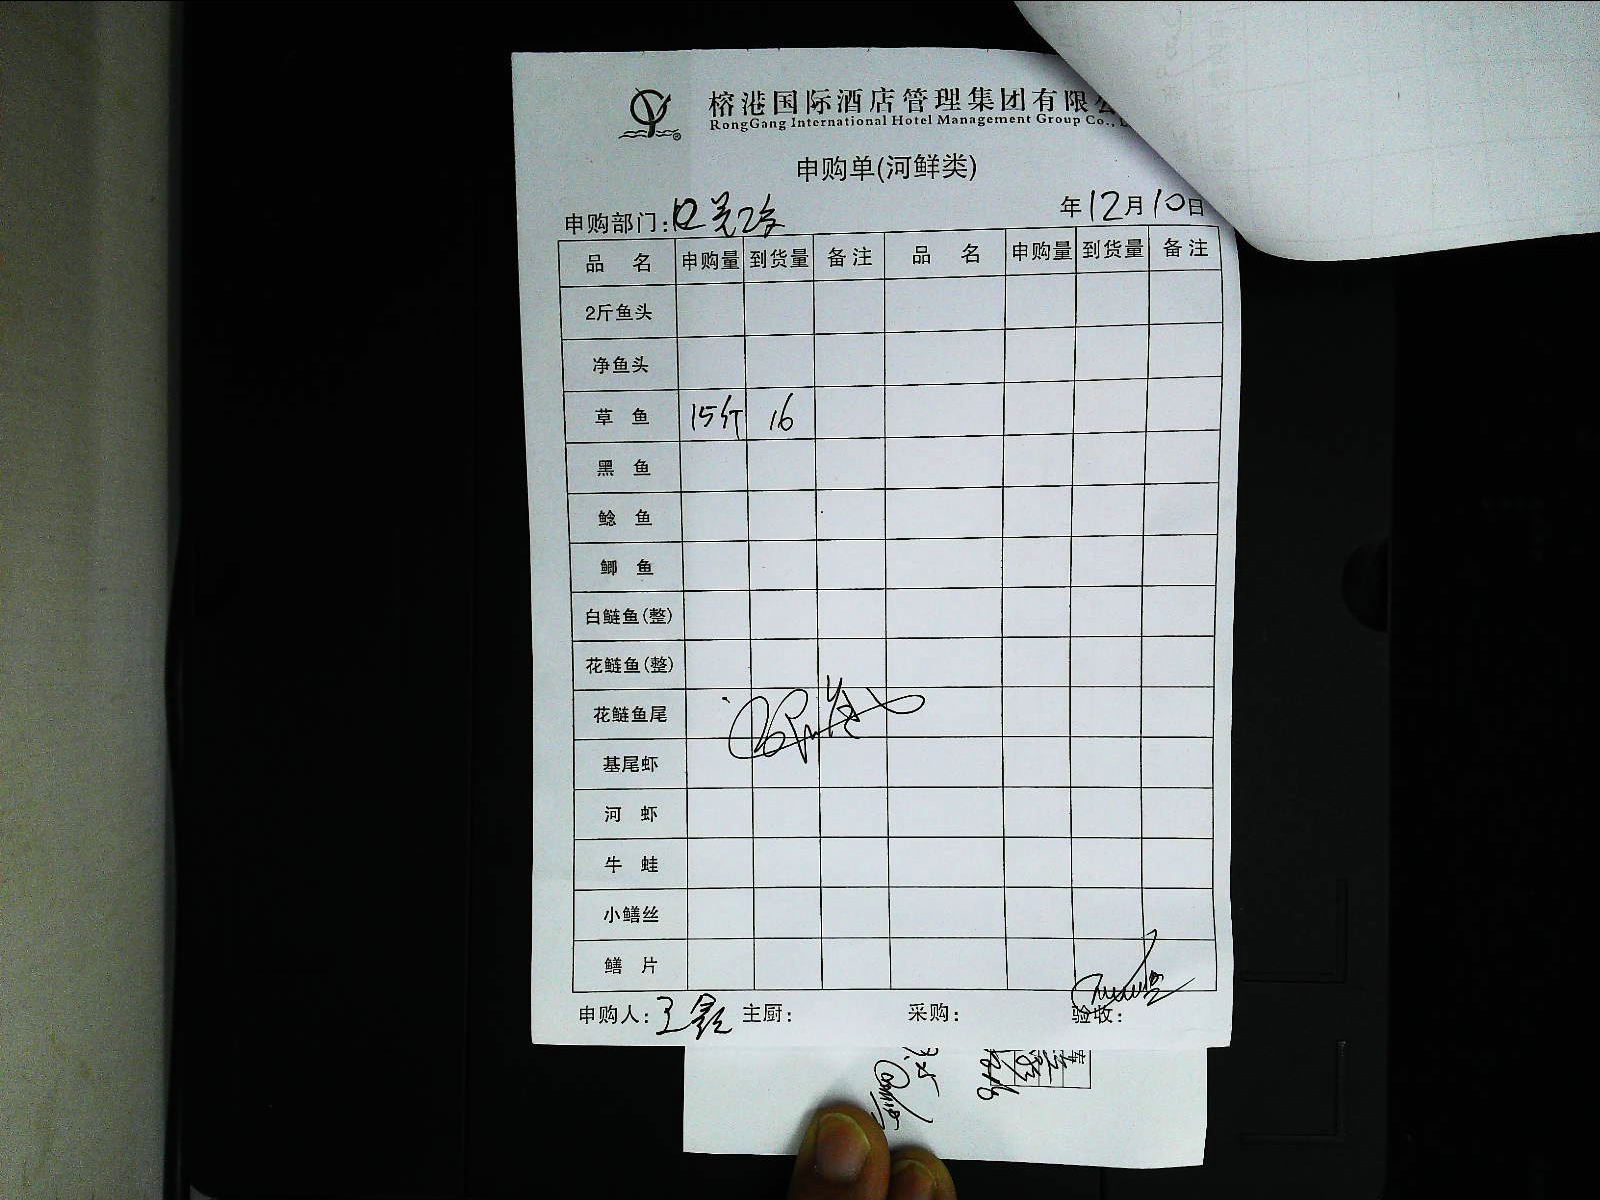 榕港国际酒店管理集团有限
RongGang International Hotel Management Group Co.,
申购单(河鲜类)
申购部门: 年12月10日
品名 申购量 到货量 备注 品名 申购量 到货量 备注
2斤鱼头
净鱼头
草鱼 15斤 16
黑鱼
鲶鱼
鲫鱼
白鲢鱼(整)
花鲢鱼(整)
花鲢鱼尾
基尾虾
河虾
牛蛙
小鳝丝
鳝片
申购人: 主厨: 采购: 验收: